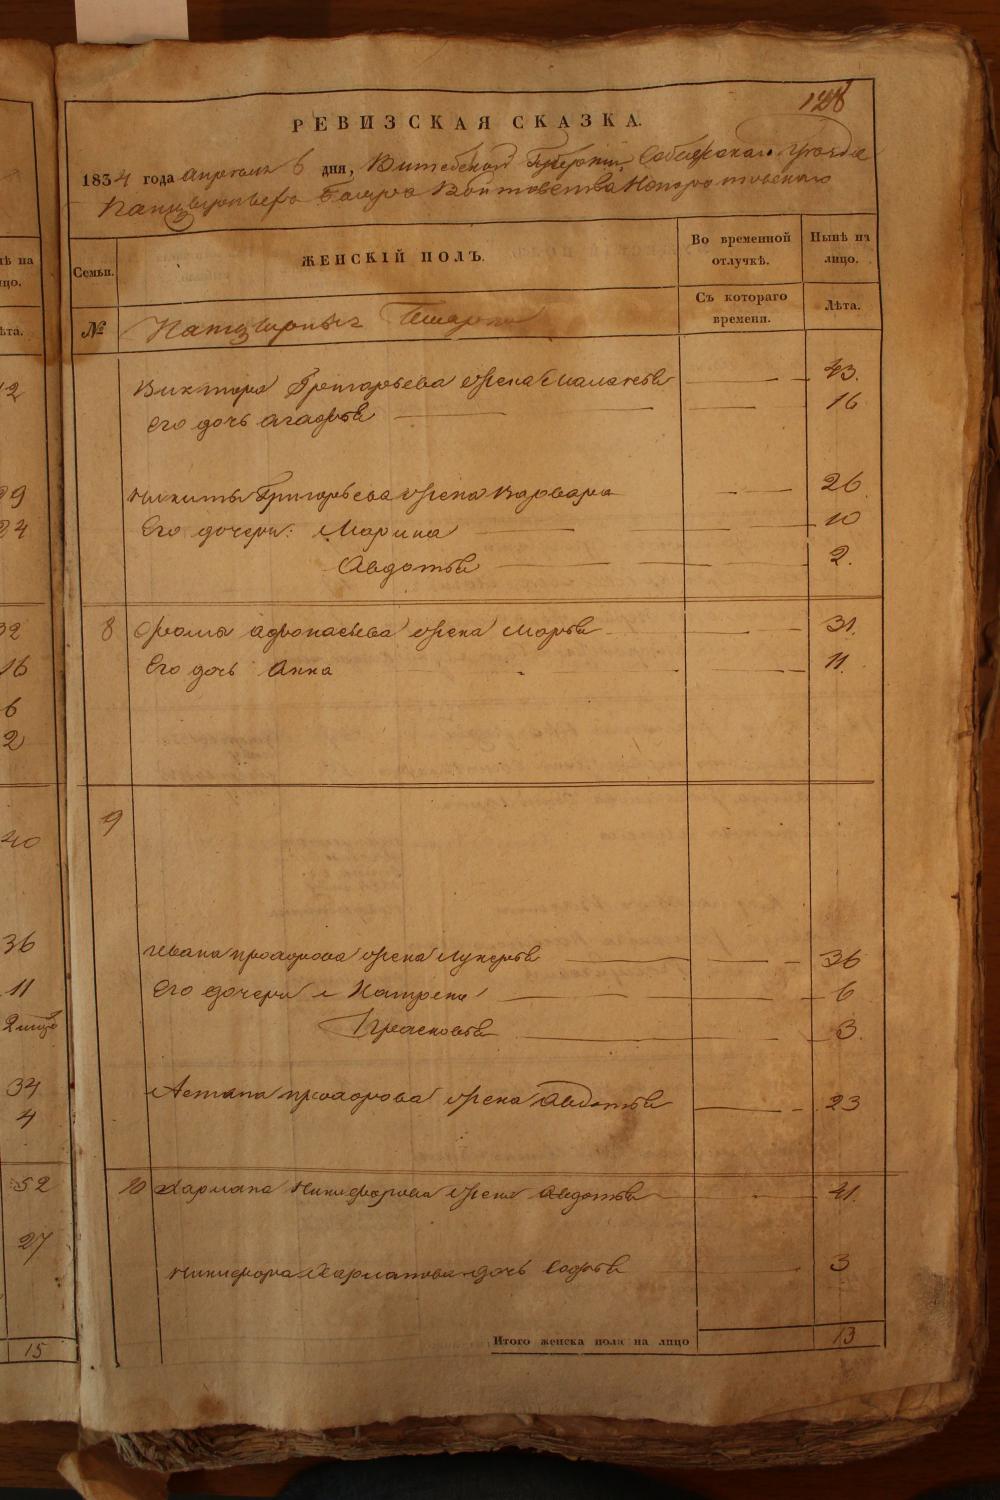 128
РЕВИЗСКАЯ СКАЗКА.
1834 года апреля 6 дня, Витебской Губернии, Себежскаго Уезда
Войтовства
Семьи. ЖЕНСКІЙ ПОЛЪ. Во временной отлучкѣ. Нынѣ на лицо.
№ Съ котораго времени. Лѣта.
Виктора Григорьева жена Маланья 43.
Его дочь Агафья 16
Никиты Григорьева жена Варвара 26.
Его дочери: Марина 10
Авдотья 2.
8 Фомы Афонасьева жена Марья 31.
Его дочь Анна 11.
9
Ивана Прохорова жена Лукерья 36
Его дочери Катрена 6
Прасковья 3.
Астапа Прохорова жена Авдотья 23
10 Харлана Никифорова жена Авдотья 41.
Никифора Харланова дочь Софья 3
Итого женска пола на лицо 13